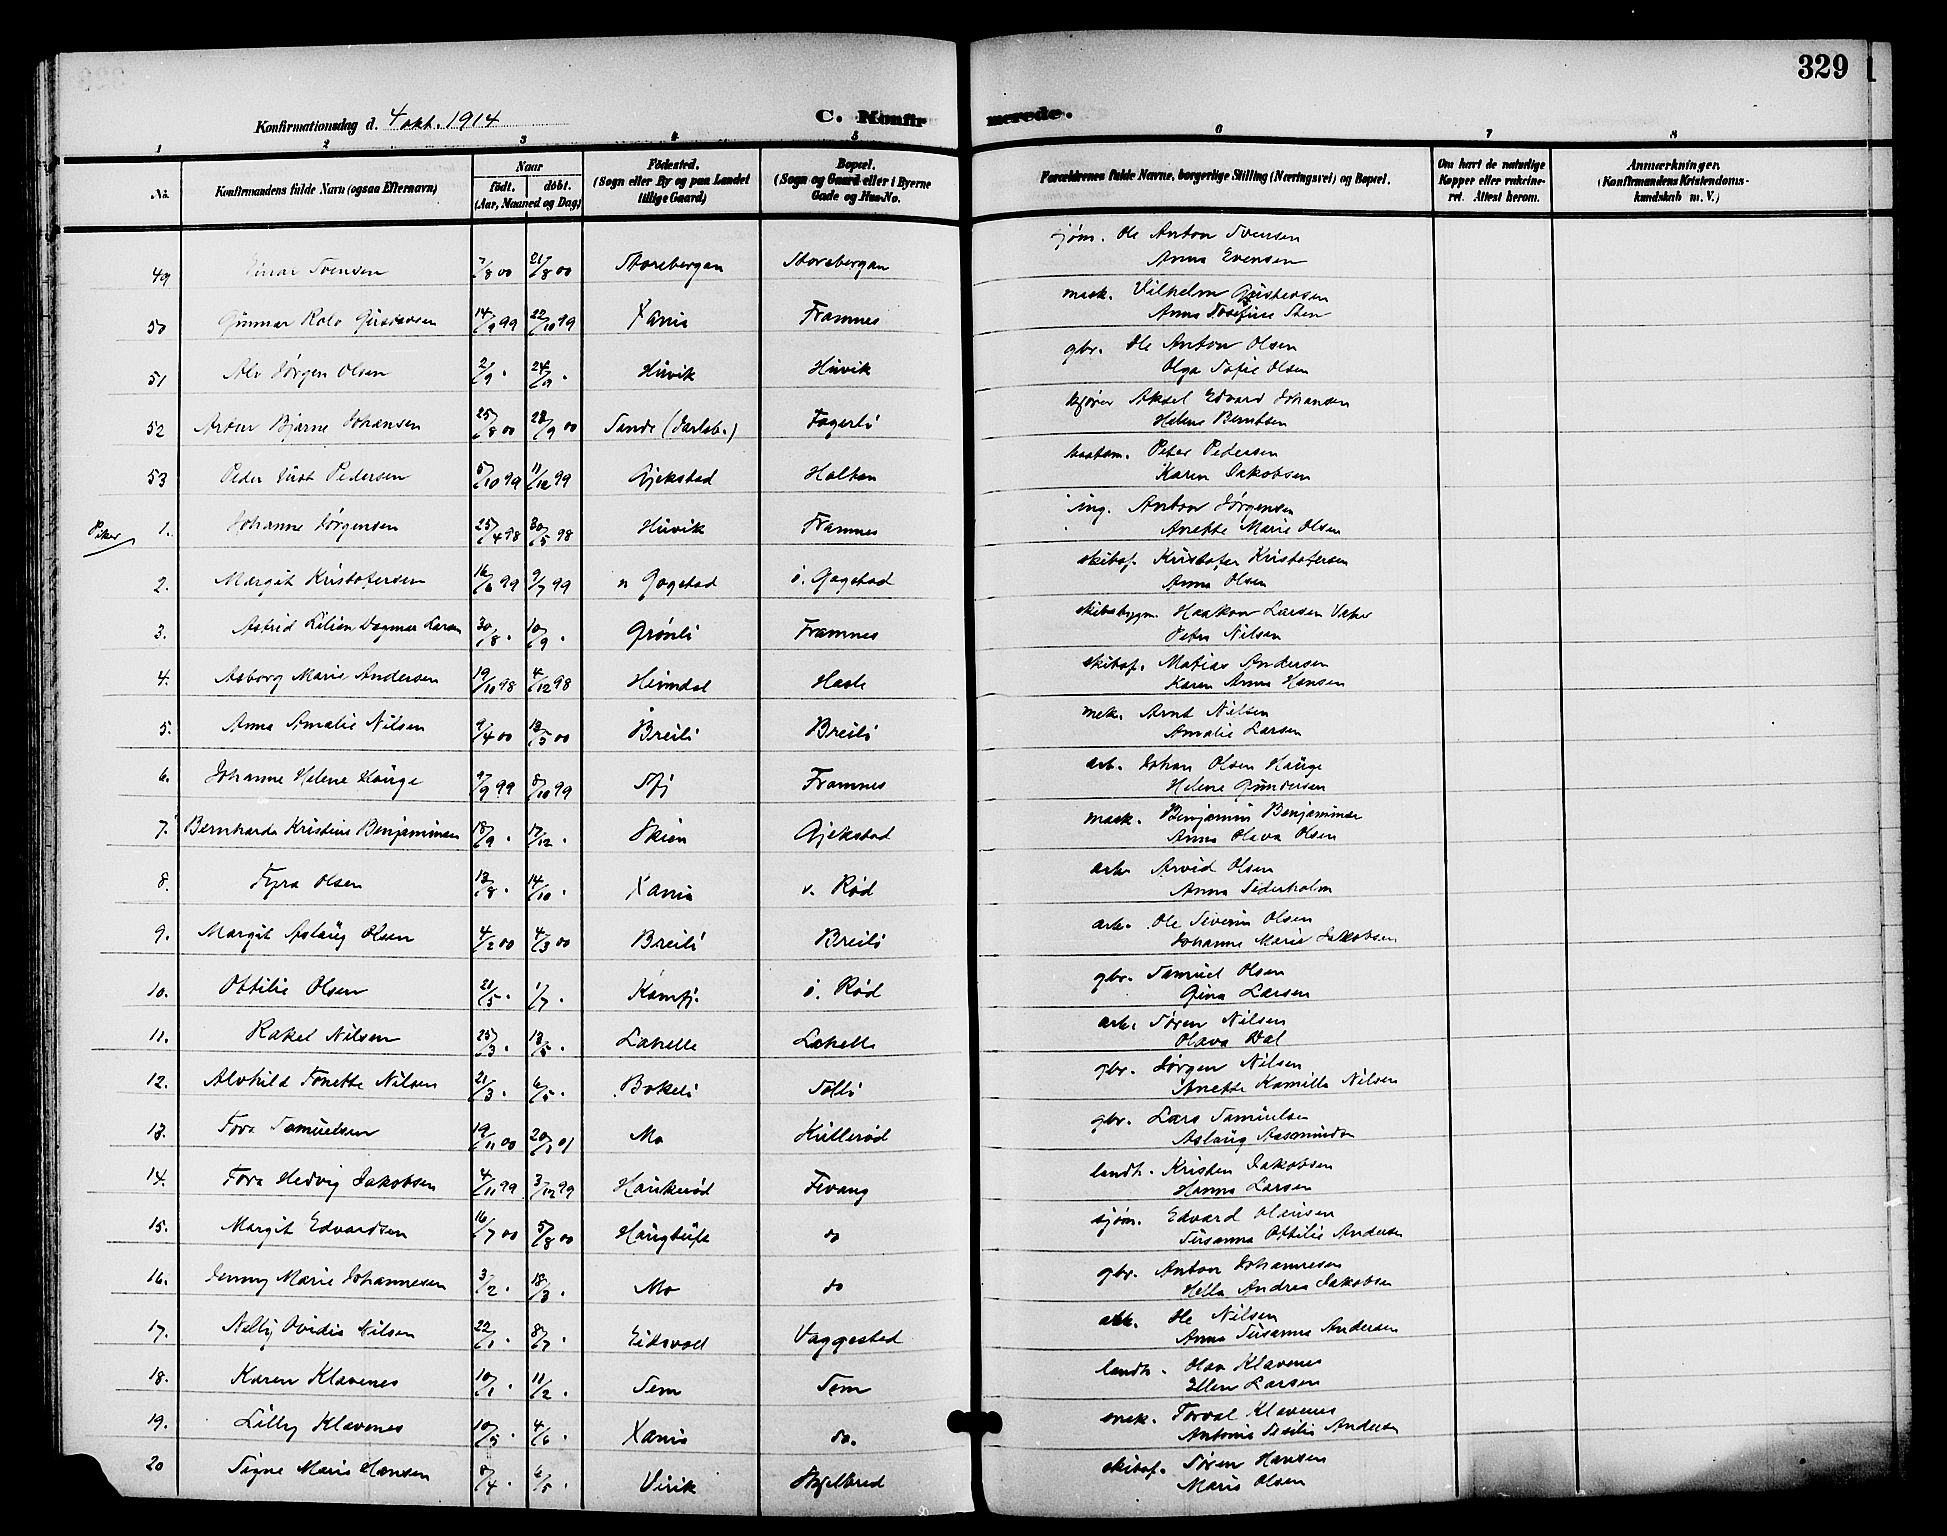 329
Konfirmationsdag d. 4 okt. 1914
C. Konfirmerede.
1 2 3 4 5 6 7 8
No. Konfirmandens fulde Navn (ogsaa Efternavn) Naar født. døbt. (Aar, Maaned og Dag) Födested. (Sogn eller By og paa Landet tillige Gaard) Bopæl. (Sogn og Gaard eller i Byerne Gade og Hus-No. Forældrenes fulde Navne, borgerlige Stilling (Næringsvei) og Bopæl. Om havt de naturlige Kopper eller vakcineret. Attest herom. Anmærkninger. (Konfirmandens Kristendomskundskab m. V.)
49 Einar Svensen 7/8 00 21/8 00 Storebergan Storebergan sjøm. Ole Anton Svensen
Anna Evensen
50 Gunnar Rolv Gustavsen 14/9 99 22/10 99 Xania Framnes mask. Vilhelm Gustavsen
Anna Josefine Steen
51 Alv Jørgen Olsen 2/9 . 24/9 . Huvik Huvik gbr. Ole Anton Olsen
Olga Sofie Olsen
52 Artur Bjarne Johansen 25/8 00 28/9 00 Sande (Jarlsb.) Fagerli kjører Aksel Edvard Johansen
Helene Berntsen
53 Peder Just Pedersen 5/10 99 11/12 99 Gjekstad Holtan baatsm. Peter Pedersen
Karen Jakobsen
Piker 1. Johanne Jørgensen 25/4 98 30/5 98 Huvik Framnes ing. Anton Jørgensen
Anette Marie Olsen
2. Margit Kristofersen 16/6 99 9/7 99 n Gogstad ö. Gogstad skibsf. Kristofer Kristofersen
Anna Olsen
3. Astrid Lilian Dagmar Larsen 30/8 . 10/9 . Grønli Framnes skibsbygm. Haakon Larsen
Petra Nilsen
4. Asborg Marie Andersen 19/10 98 4/12 98 Heimdal Hasle skibsf. Matias Andersen
Karen Anna Hansen
5. Anna Amalie Nilsen 9/4 00 13/5 00 Breili Breili mek. Arnt Nilsen
Amalie Larsen
6. Johanne Helene Hauge 9/9 99 8/10 99 Sfj Framnes arb. Johan Olsen Hauge
Helene Gundersen
7. Bernharda Kristine Benjaminsen 18/9 . 17/12 . Skien Gjekstad mask. Benjamin Benjaminsen
Anna Olava Olsen
8. Fyra Olsen 13/8 . 14/10 . Xania v. Rød arb. Arvid Olsen
Anna Sederholm
9. Margit Aslaug Olsen 4/2 00 4/3 00 Breili Breili arb. Ole Severin Olsen
Johanne Marie Jakobsen
10. Ottilie Olsen 21/5 . 1/7 . Kamfj. ö. Rød gbr. Samuel Olsen
Gina Larsen
11. Rakel Nilsen 25/3 . 13/5 . Lahelle Lahelle arb. Søren Nilsen
Olava Dal
12. Alvhild Tonette Nilsen 21/3 . 6/5 . Bøkeli Solli gbr. Jørgen Nilsen
Anette Kamilla Nilsen
13. Tora Samuelsen 19/11 00 Mo Kullerød gbr. Lars Samuelsen
Aslaug Aasmunds
14. Tora Hedvig Jakobsen 4/11 99 3/12 99 Haukerød Fevang landh. Kristen Jakobsen
Hanna Larsen
15. Margit Edvardsen 16/7 00 5/8 00 Haugtuft do sjøm. Edvard Olausen
Susanna Ottilie Andersen
16. Jenny Marie Johannesen 3/2 . 18/3 . Mo do gbr. Anton Johannesen
Hella Andrea Jakobsen
17. Nelly Ovidia Nilsen 22/1 . 8/7 . Eidsvold Vaggestad arb. Ole Nilsen
Anna Susanna Andersen
18. Karen Klavenes 10/1 . 11/2 . Sem Sem landh. Olav Klavenes
Ellen Larsen
19. Lilly Klavenes 10/3 . 4/6 . Xania do. mek. Torval Klavenes
Antonia Sesilie Andersen
20 Signe Marie Hansen 8/4 . 6/5 . Virik Skjelbred skibsf. Søren Hansen
Marie Olsen